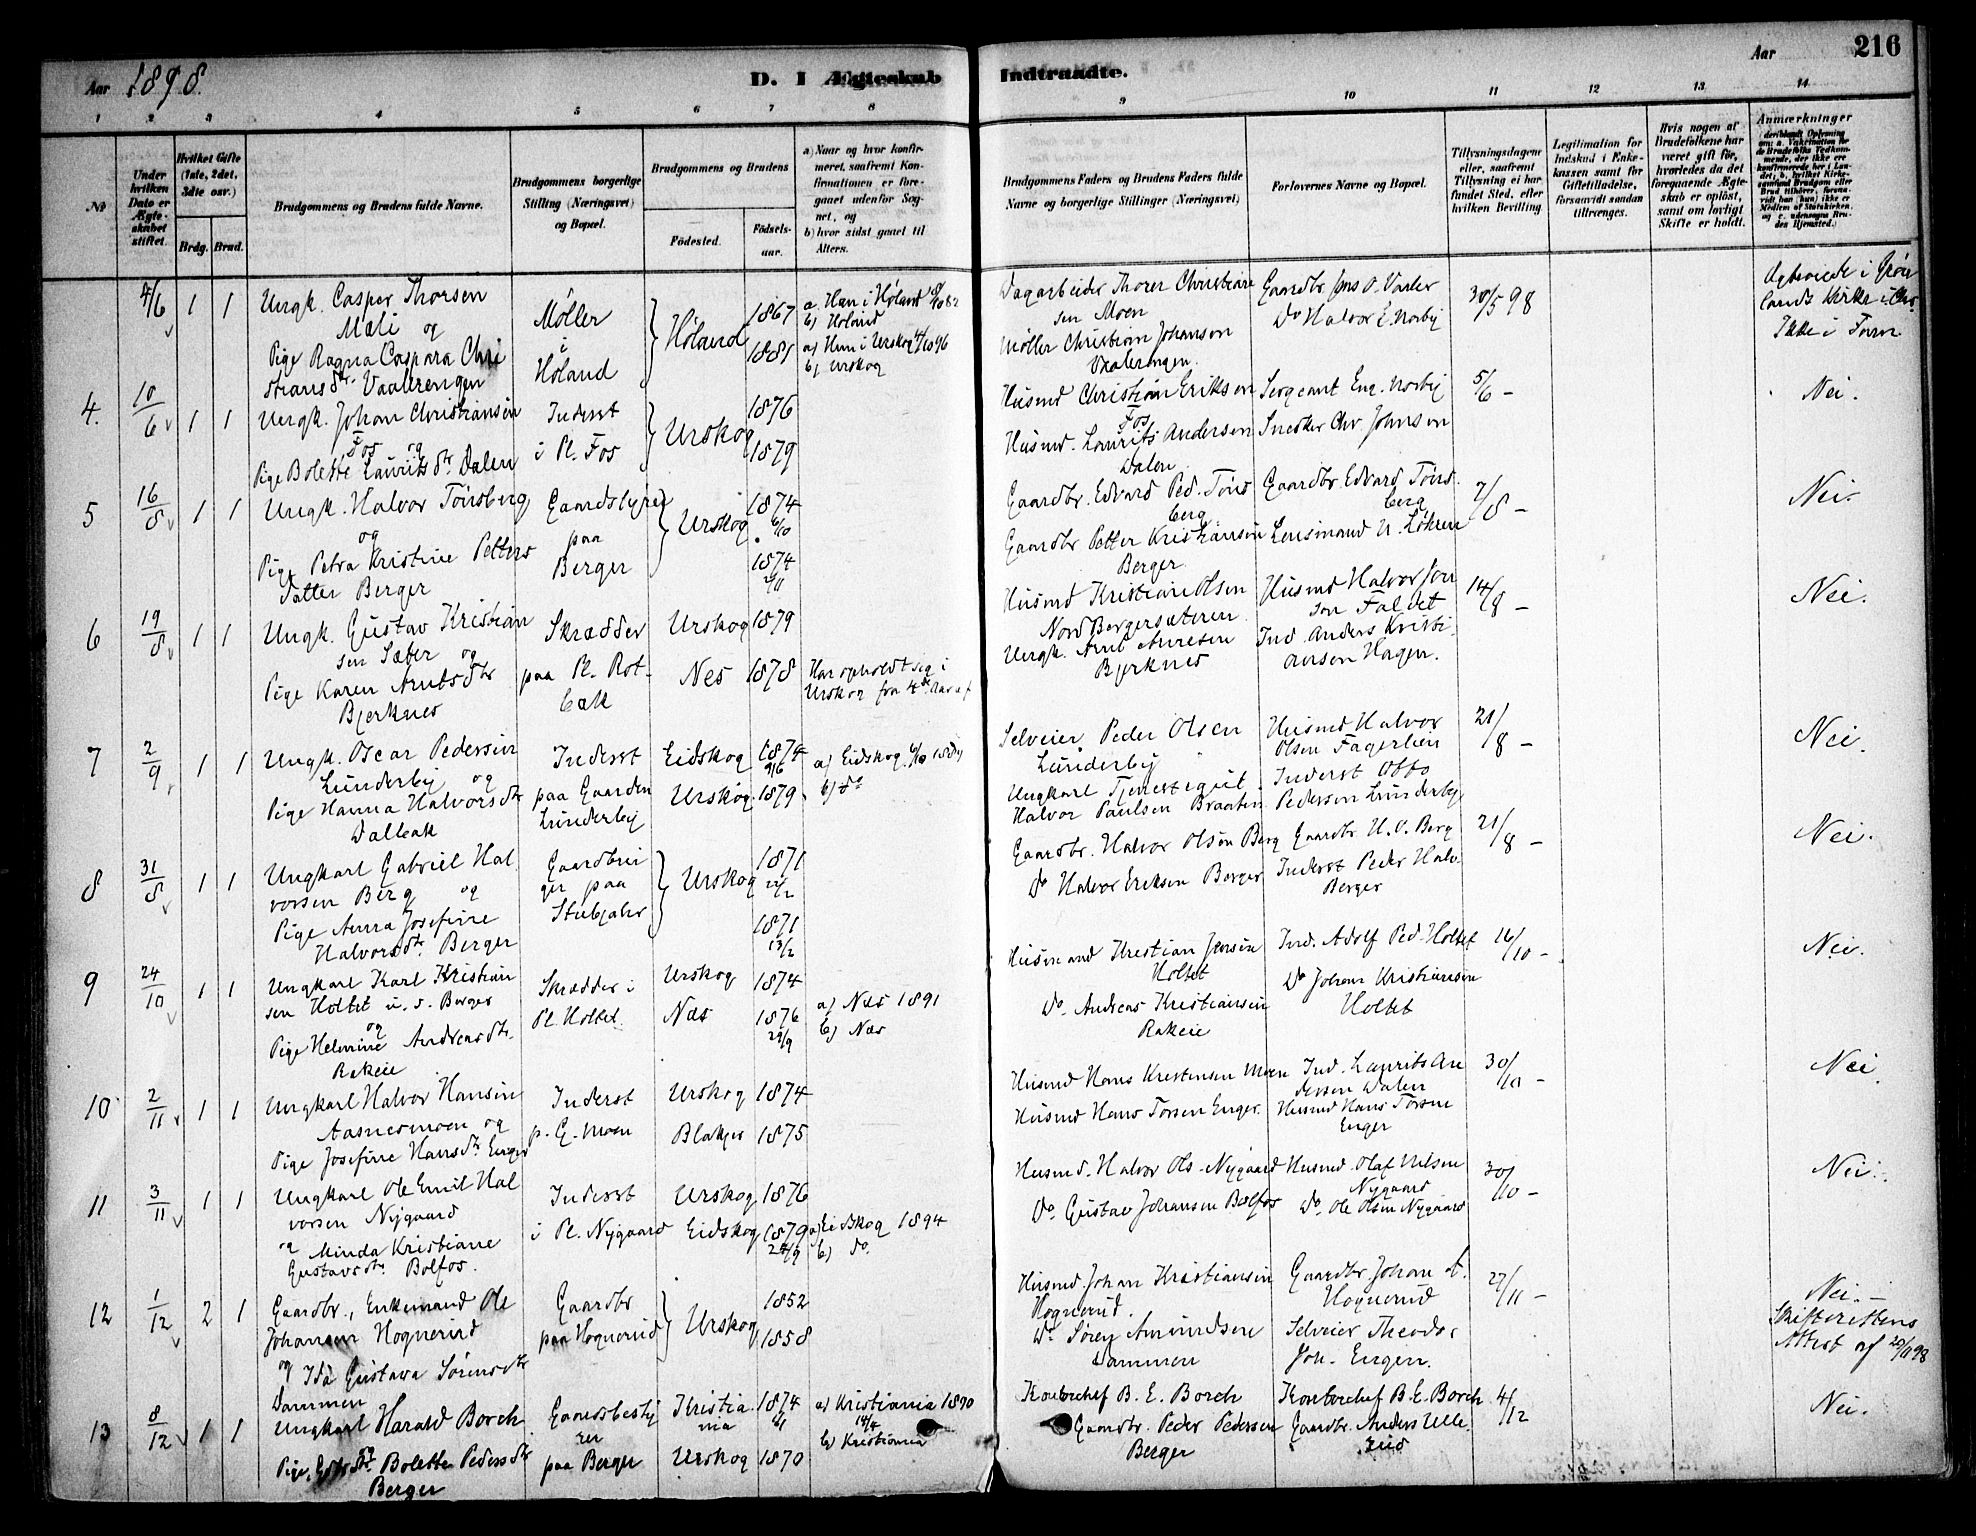 Aar 1898.
D. 1 Ægteskab Indtraadte.
Aar 216
1 2 3 4 5 6 7 8 9 10 11 12 13 14
№
Under hvilken Dato er Ægteskabet stiftet.
Hvilket Gifte (1ste, 2det, 3die osv.)
Brdg. Brud.
Brudgommens og Brudens fulde Navne.
Brudgommens borgerlige Stilling (Næringsvei) og Bopæl.
Brudgommens og Brudens
Fødested.
Fødselsaar.
a) Naar og hvor konfirmeret, saafremt Konfirmationen er foregaaet udenfor Sognet, og
b) hvor sidst gaaet til Alters.
Brudgommens Faders og Brudens Faders fulde Navne og borgerlige Stillinger (Næringsvei)
Forlovernes Navne og Bopæl.
Tillysningsdagene eller, saafremt Tillysning ei har fundet Sted, efter hvilken Bevilling.
Legitimation for Indskud i Enkekassen samt for Giftetilladelse, forsaavidt saadan tiltrænges.
Hvis nogen af Brudefolkene har været gift før, hvorledes da det foregaaende Ægteskab er opløst, samt om lovligt Skifte er holdt.
Anmærkninger
4/6 1 1 Ungk. Casper Thorsen
Mæli og
Pige Ragna Caspara Chri
stiansdtr Vaalerengen
Møller
i
Høland
Høland
1867
1881
a Han i Høland
b) Høland
a) Hun i Urskog
b) Urskog
Dagarbeider Thorer Christian
sen Moen
Møller Christian Johanson
Vaalerengen.
Gaardbr. Jens O. Vaaler
Do Halvor E. Norby
30/5 98
Ikke i Form
4. 10/6 1 1 Ungk. Johan Christiansen
Fos og
Pige Bolette Lauritsdtr. Dalen
Inderst
i Pl. Fos
Urskog
1876
1879
Husmd Christian Eriksen
Fos
Husmd. Laurits Andersen
Dalen
Sergeant Eng. Norby
Snedker Chr. Johnsen
5/6 –
Nei.
5 16/8 1 1 Ungk. Halvor Tønsberg
og
Pige Petra Kristine Petters
datter Berger
Gaardstyrer
paa
Berger
Urskog
1874
6/10
1874
Gaardbr. Edvard Ped. Tøns
berg
Gaardbr Petter Kristiansen
Berger
Gaardbr. Edvard Tøns
berg
Lensmand N. Løkren
7/8 –
Nei.
6 19/8 1 1 Ungk. Gustav Kristian
sen Sæter og
Pige Karen Arntsdtr
Bjerknes
Skrædder
paa Pl. Rot-
bæk
Urskog
Nes
1879
1878
Har opholdt sig i
Urskog fra 4de Aar af
Husmd Kristian Olsen
Nord Bergersæteren
Ungk. Arnt Arnesen
Bjerknes
Husmd Halvor Jon
sen Faldet
Ind Anders Kristi
ansen Hagen.
14/8 –
Nei.
7 2/9 1 1 Ungk. Oscar Pedersen
Lunderby og
Pige Hanna Halvorsdtr
Dalbak
Inderst
paa Gaarden
Lunderby
Eidskog
Urskog
1874
9/6
1879
a) Eidskog
b) do
Selveier Peder Olsen
Lunderby
Ungkarl Tjenestegut
Halvor Paulsen Braaten
Husmd Halvor
Olsen Fagerlien
Inderst Otto
Pedersen Lunderby
21/8 –
Nei.
8 31/8 1 1 Ungkarl Gabriel Hal
vorsen Berg og
Pige Anna Josefine
Halvorsdtr. Berger
Gaardbru
ger paa
Urskog
1871
1871
13/2
Gaardbr. Halvor Olsen Berg
Do Halvor Eriksen Berger
Gaardbr H. O. Berg
Inderst Peder Halv.
Berger
21/8 –
Nei.
9 24/10 1 1 Ungkarl Karl Kristian
sen Holtet u. s. Berger
og
Pige Helmine Andreasdtr.
Rakeie
Skrædder i
Pl. Holtet
Urskog
Næs
1874
1876
29/9
a) Næs 1891
b) Næs
Husmand Kristian Jensen
Holtet
Do. Andreas Kristiansen
Rakeie
Ind. Adolf Ped. Holtet
Do Johan Kristiansen
Holtet
16/10 –
Nei.
10 2/11 1 1 Ungkarl Halvor Hansen
Aasnesmoen og
Pige Josefine Hansdtr Enger
Inderst
p. G. Moen
Urskog
Blakjer
1874
1875
Husmd Hans Kristensen Moen
Husmd Hans Torsen Enger.
Ind. Laurits An
dersen Dalen
Husmd Hans Torsen
Enger
30/10 –
Nei
11 3/11 1 1 Ungkarl Ole Emil Hal
vorsen Nygaard
og Minda Kristiane
Gustavsdtr. Bolfos.
Inderst
i Pl. Nygaard
Urskog
Eidskog
1876
1879
a) Eidskog 1894
b) do.
Husmd. Halvor Ols. Nygaard
Do. Gustav Johansen Bolfos
Husmd. Olaf Nilsen
Nygaard
Do. Ole Olsen Nygaard
30/10 –
Nei.
12 1/12 2 1 Gaardbr., Enkemand Ole
Johansen Hognerud
og Ida Gustava Sørensdtr
Dammen
Gaardbr
paa Hognerud
Urskog
1852
1858
Husmd Johan Kristiansen
Hognerud.
Do Søren Amundsen
Dammen
Gaardbr. Johan A.
Hognerud
Selveier Theodor
Joh. Engen.
27/11 –
Nei. –
Skifterettens
Attest af 28/11 98
13 8/12 1 1 Ungkarl Harald Borch
og
Pige Bolette Pedersdtr
Berger
Gaardbesty
rer
paa Berger
Kristia
nia
Urskog
1874
1870
a) Kristiania 1890
b) Kristiania
Kontorchef B. E. Borch
Gaardbr. Peder Pedersen
Berger
Kontorchef B. E. Borch
Gaardbr. Anders Ulle
rud
4/12
Nei.